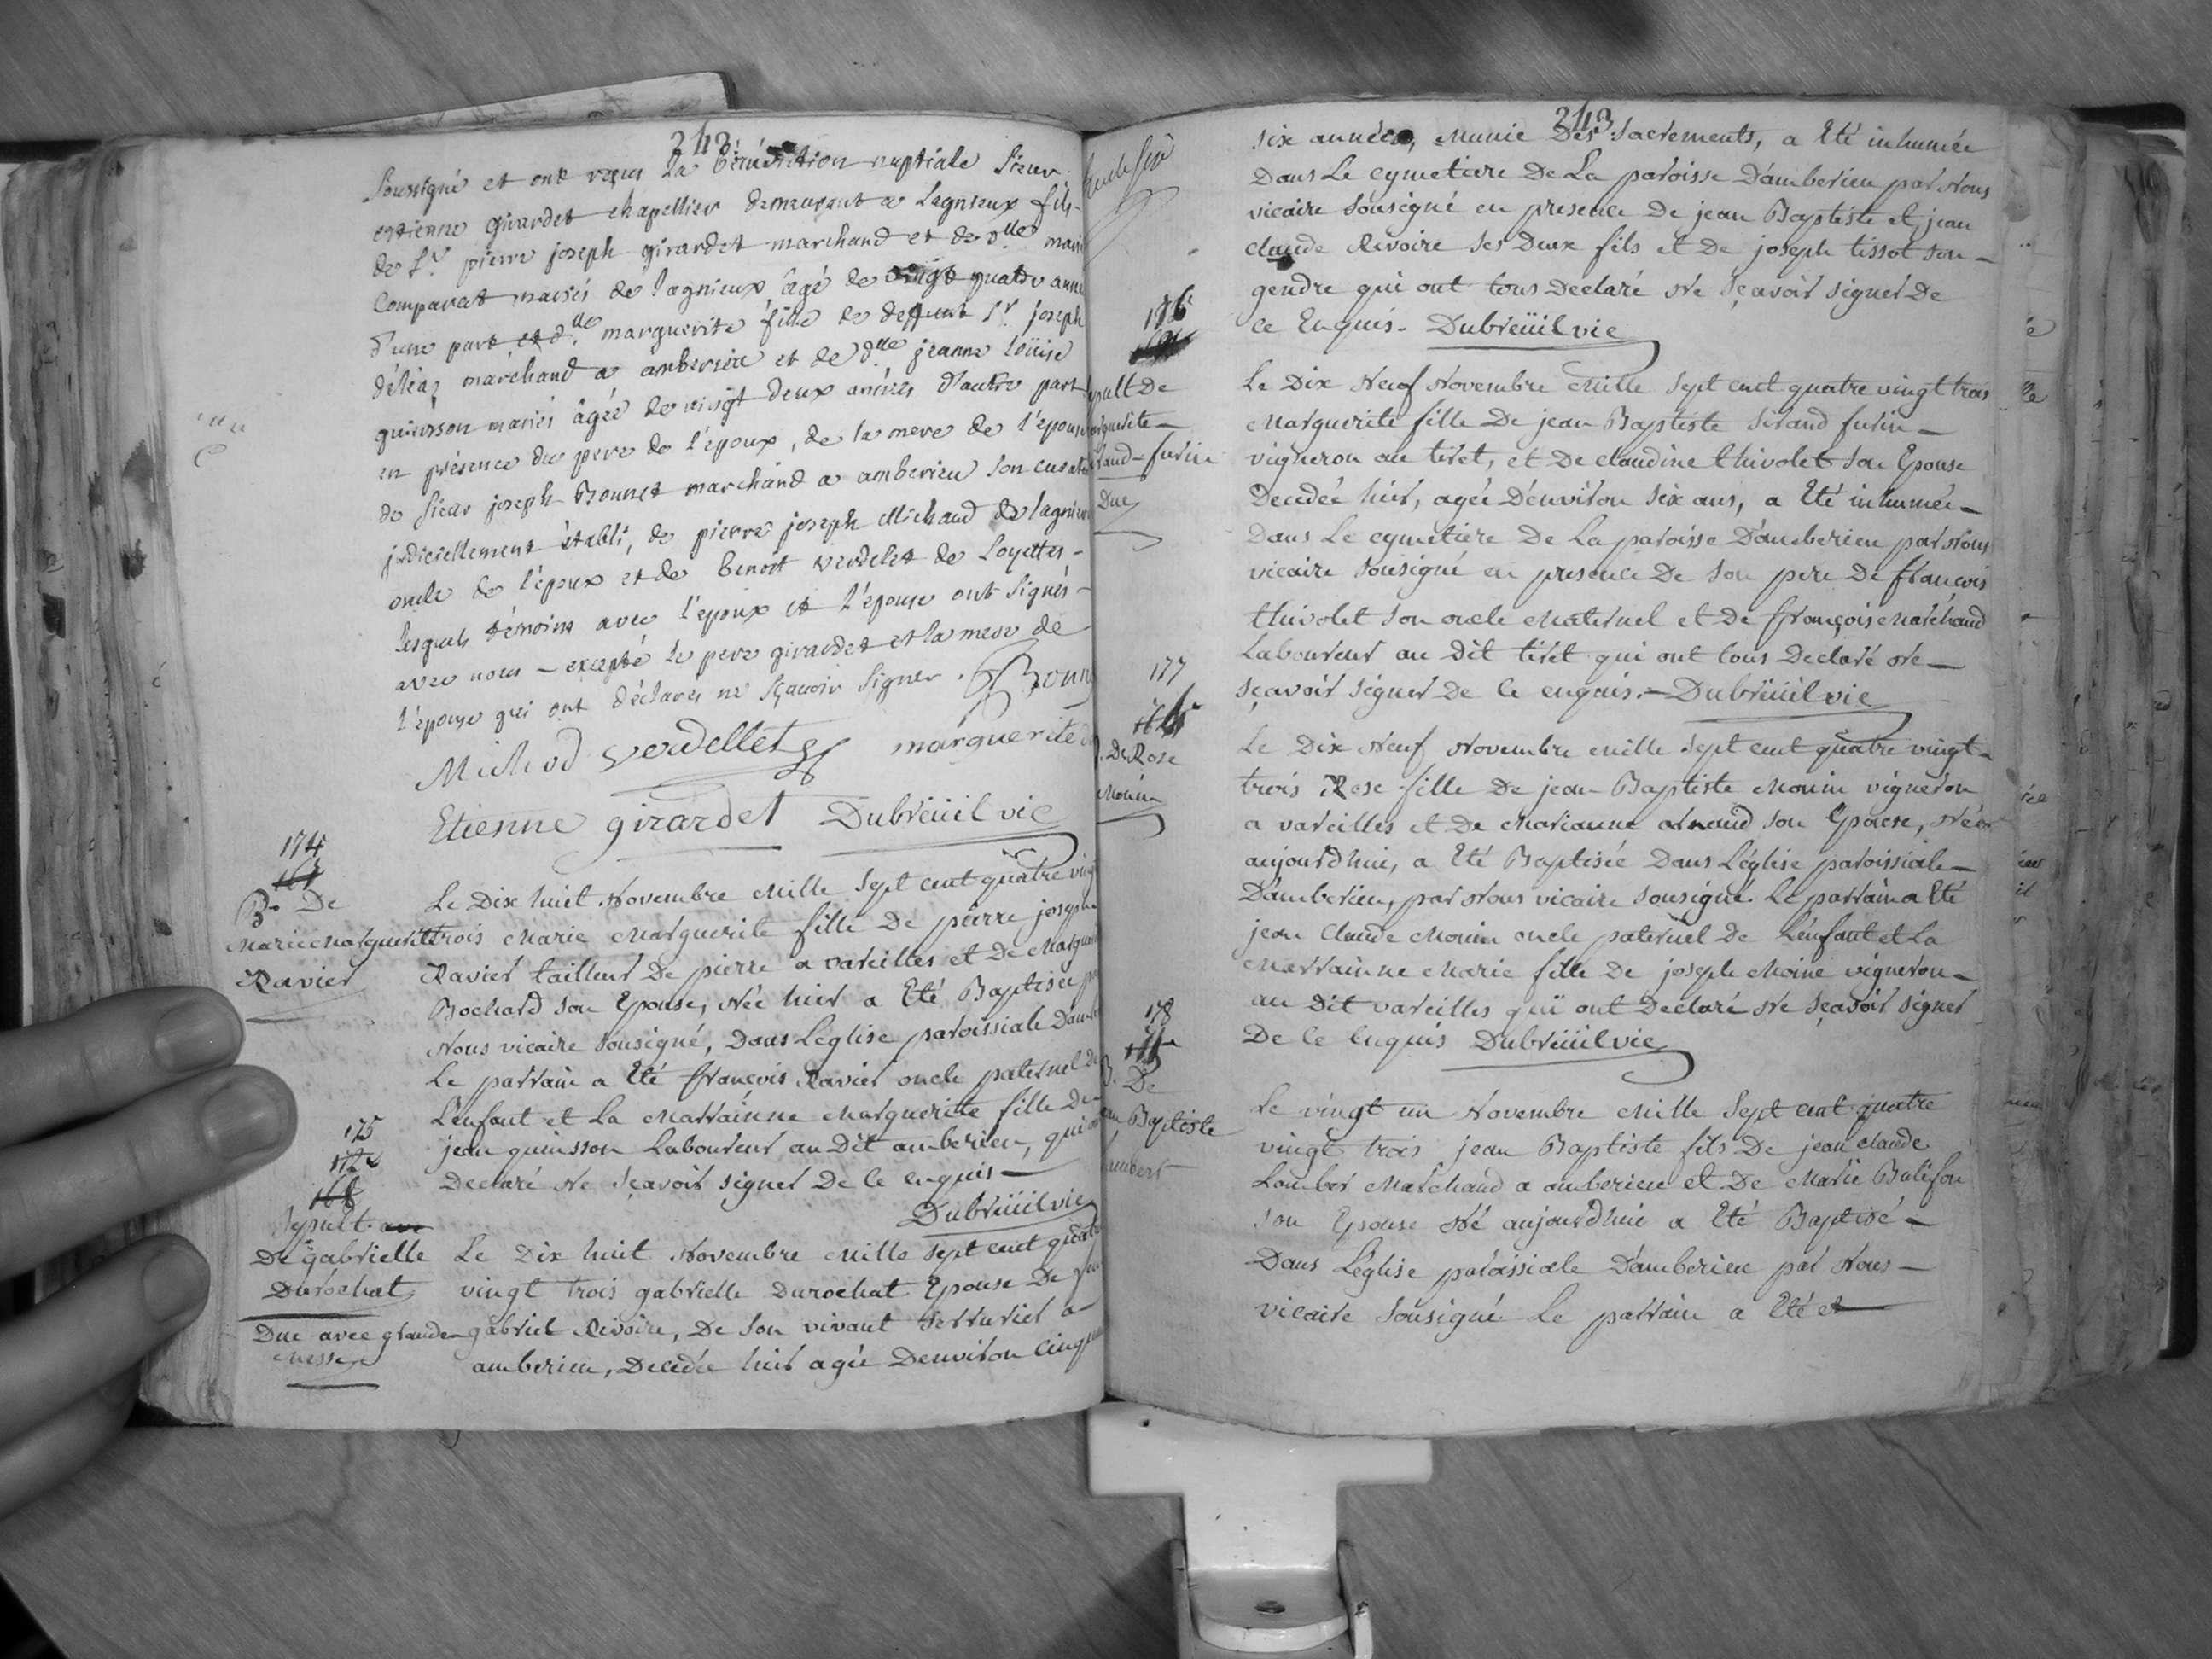 243
soussigné et ont reçus la bénédiction nuptiale sieur
estienne girardet chapellier demeurant a Lagnieux fils
de Sr. pierre joseph girardet marchand et de dlle marie
Comparat mariés de lagnieux âgé de vingt quatre anné
d'une part et dlle marguerite fille de deffunt Sr. joseph
déléaz marchand a amberieu et de dlle jeanne loüise
quinsson mariés âgée de vingt deux années d'autre part
en présence du pere de l'époux, de la mere de l'épouse
de sieur joseph Bonnet marchand a amberieu son curat
judiciellement établi, de pierre joseph Michaud de lagnieu
oncle de l'époux et de benoit verdelet de Loyettes -
lesquels témoins avec l'epoux et l'épouse ont signés -
avec nous - excepté le pere girardet et la mere de
l'epouse qui ont déclarés ne sçavoir signer. Bonn
Michod verdellet marguerite
Etienne girardet Dubreüil vic
174
B. De
Marie Marguerite
Ravier
Le Dix huit Novembre Mille Sept cent quatre ving
trois Marie Marguerite fille De pierre joseph
Ravier tailleur De pierre a vareilles et De Margue
Bochard son Epouse, Née hier a Eté Baptisée p
Nous vicaire sousigné, Dans Léglise paroissiale Damb
Le parrain a Eté françois Ravier oncle paternel De
L'enfant et La Marrainne Marguerite fille De
jean quinsson Laboureur au Dit amberieu, qui
Declaré Ne sçavoir signer De ce enquis -
Dubreüil vic
175
172
168
sepult.
De gabrielle
Durochat
Due avec grande
messe
Le Dix huit Novembre Mille sept cent quatr
vingt trois gabrielle Durochat Epouse De feu
gabriel Rivoire, De son vivant serrurier a
amberieu, Decedée hier agée Denviron Cinqu
243
six années, Munie Des Sacrements, a Eté inhumée
Dans Le cymetiere De La paroisse D'amberieu par Nous
vicaire sousigné en presence De jean Baptiste et jean
claude Rivoire ses Deux fils et De joseph tissot son -
gendre qui ont tous Declaré Ne sçavoir signer De
ce Enquis - Dubreüil vic
176
pult De
rguerite -
rand - furin
Due
Le Dix Neuf Novembre Mille Sept cent quatre vingt trois
Marguerite fille De jean Baptiste sirand furin -
vigneron au tiret, et De claudine thivolet son Epouse
Decedée hier, agée D'environ six ans, a Eté inhumée -
Dans Le cymetiere De La paroisse D'amberieu par Nous
vicaire sousigné en presence De son pere De françois
thivolet son oncle Maternel et De françois Marchand
Laboureur au Dit tiret qui ont tous Declaré Ne -
sçavoir signer De ce enquis. - Dubreüil vic
177
De Rose
Monin
Le Dix Neuf Novembre Mille Sept cent quatre vingt -
trois Rose fille De jean - Baptiste Monin vigneron
a vareilles et De Marianne arnaud son Epouse, Née
aujourdhui, a Eté Baptisée Dans Léglise paroissiale -
D'amberieu, par Nous vicaire sousigné. Le parrain a Eté
jean Claude Monin oncle paternel De L'enfant et La
Marrainne Marie fille De joseph Moine vigneron -
au Dit vareilles qui ont Declaré Ne sçavoir signer
De ce enquis Dubreüil vic
178
B. De
an Baptiste
mbert
Le vingt un Novembre Mille Sept cent quatre
vingt trois jean Baptiste fils De jean claude
Lomber Marchand a amberieu et De Marie Balifon
son Epouse Né aujourdhui a Eté Baptisé -
Dans Léglise paroissiale D'amberieu par Nous -
vicaire sousigné Le parrain a Eté et